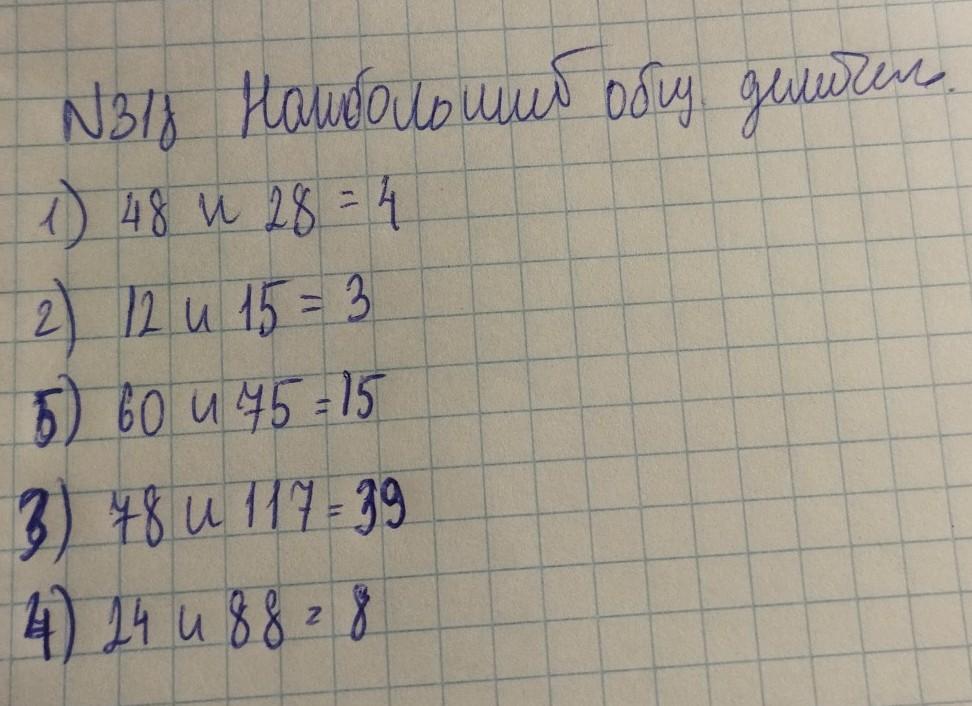 N318 Наибольший общ. делител.
1) 48 и 28 = 4
2) 12 и 15 = 3
5) 60 и 75 = 15
3) 78 и 117 = 39
4) 24 и 88 = 8